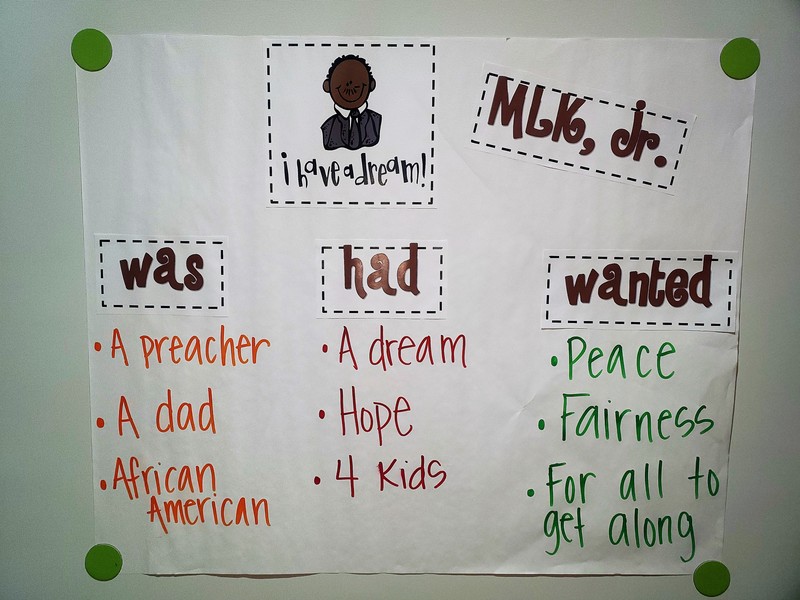 i have a dream!
MLK, jr.
was
• A preacher
• A dad
• African
American
had
• A dream
• Hope
• 4 Kids
wanted
• Peace
• Fairness
• For all to
get along